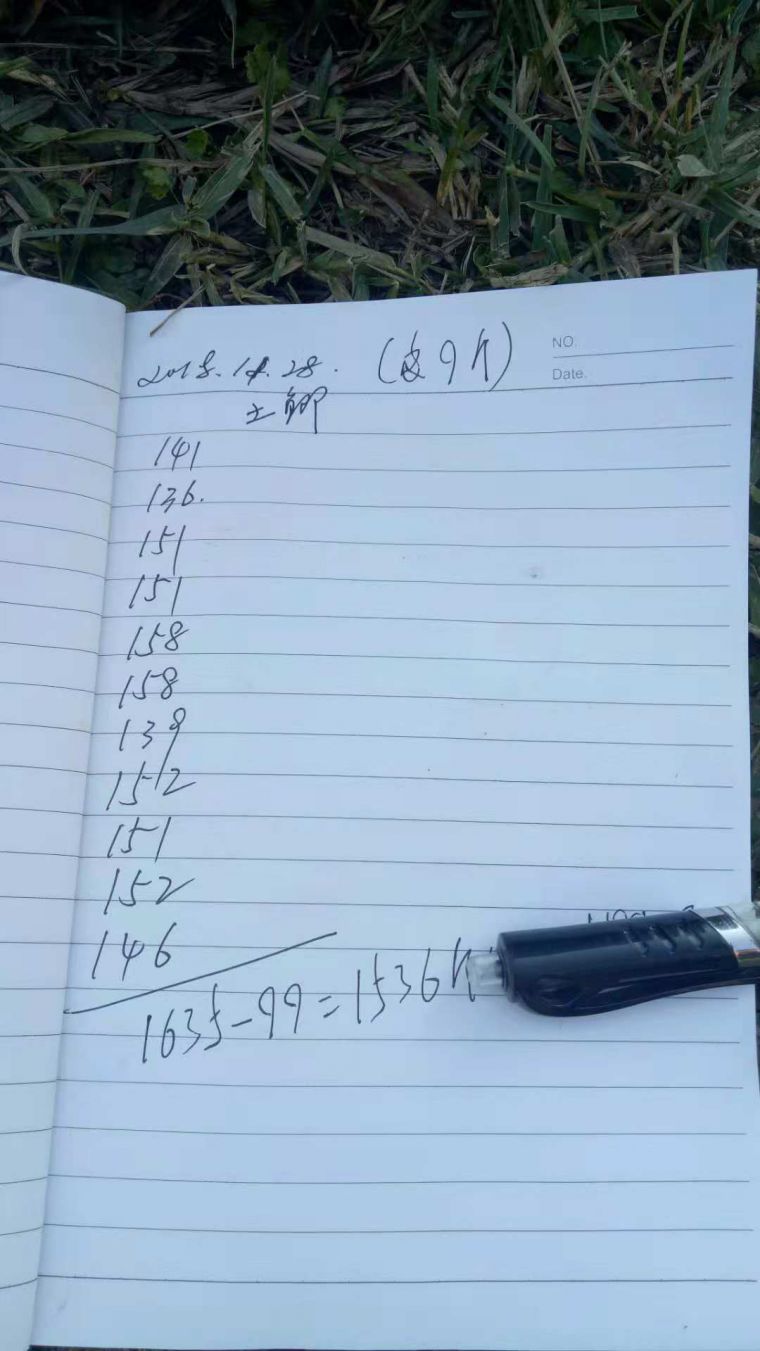 2018.11.28. (皮9斤)
NO.
Date.
141
136.
151
151
158
158
139
152
151
152
146
1635-99=1536斤